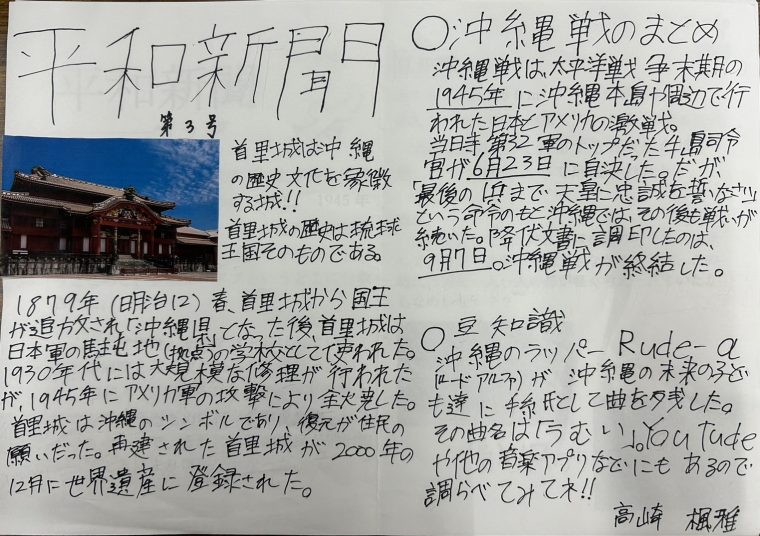 平和新聞
第3号
首里城は沖縄
の歴史文化を象徴
する城!!
首里城の歴史は琉球
王国そのものである。
1879年(明治12)春、首里城から国王
が追放され「沖縄県」となった後、首里城は
日本軍の駐屯地(拠点)の学校として使われた。
1930年代には大規模な修理が行われた
が、1945年にアメリカ軍の攻撃により全焼した。
首里城は沖縄のシンボルであり、復元が住民の
願いだった。再建された首里城が2000年の
12月に世界遺産に登録された。
○沖縄戦のまとめ
沖縄戦は、太平洋戦争末期の
1945年に沖縄本島や周辺で行
われた日本とアメリカの激戦。
当日寺第32軍のトップだった牛島司令
官が6月23日に自決した。だが、
「最後の1兵まで天皇に忠誠を誓いなさい」
という命令のもと沖縄では、その後も戦いが
続いた。降伏文書に調印したのは、
9月7日。沖縄戦が終結した。
○豆知識
沖縄のラッパー Rude-α
(ルードアルファ)が沖縄の未来の子ど
も達に手紙として曲を残した。
その曲名は「うむい」。YouTude
や他の音楽アプリなどにもあるので
調らべてみてネ!!
高崎 楓雅